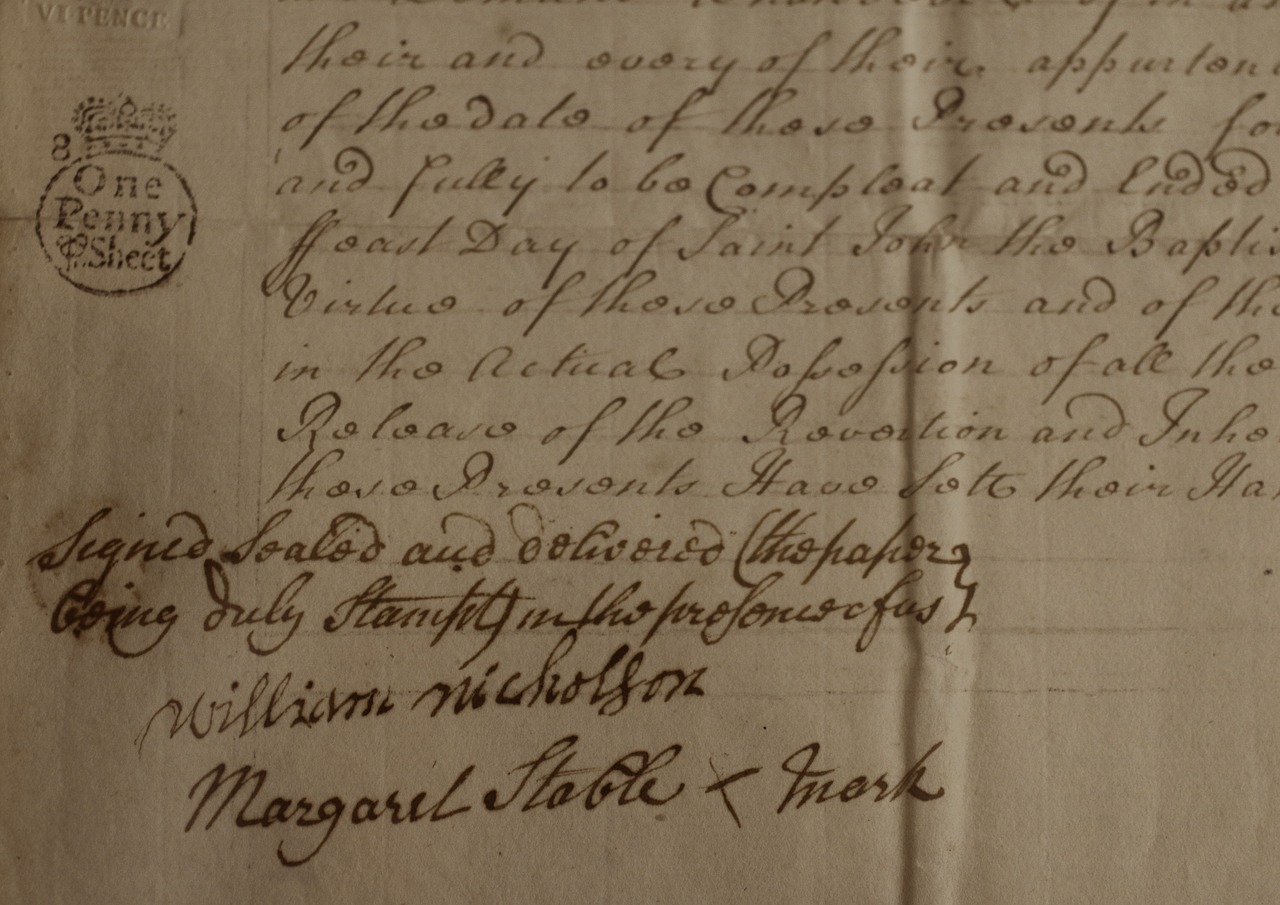 VI PENCE
8
One
Penny
P. Sheet
their and every of their appurten
of the date of these Presents fo
and fully to be Compleat and Ended
ffeast Day of Saint John the Baptis
Virtue of these Presents and of the
in the Actual Possession of all the
Release of the Revertion and Inhe
these Presents Have Sett their Han
Signed Sealed and delivered (the paper
being duly Stampt) in the presence of us
William Nicholson
Margaret Stable X mark